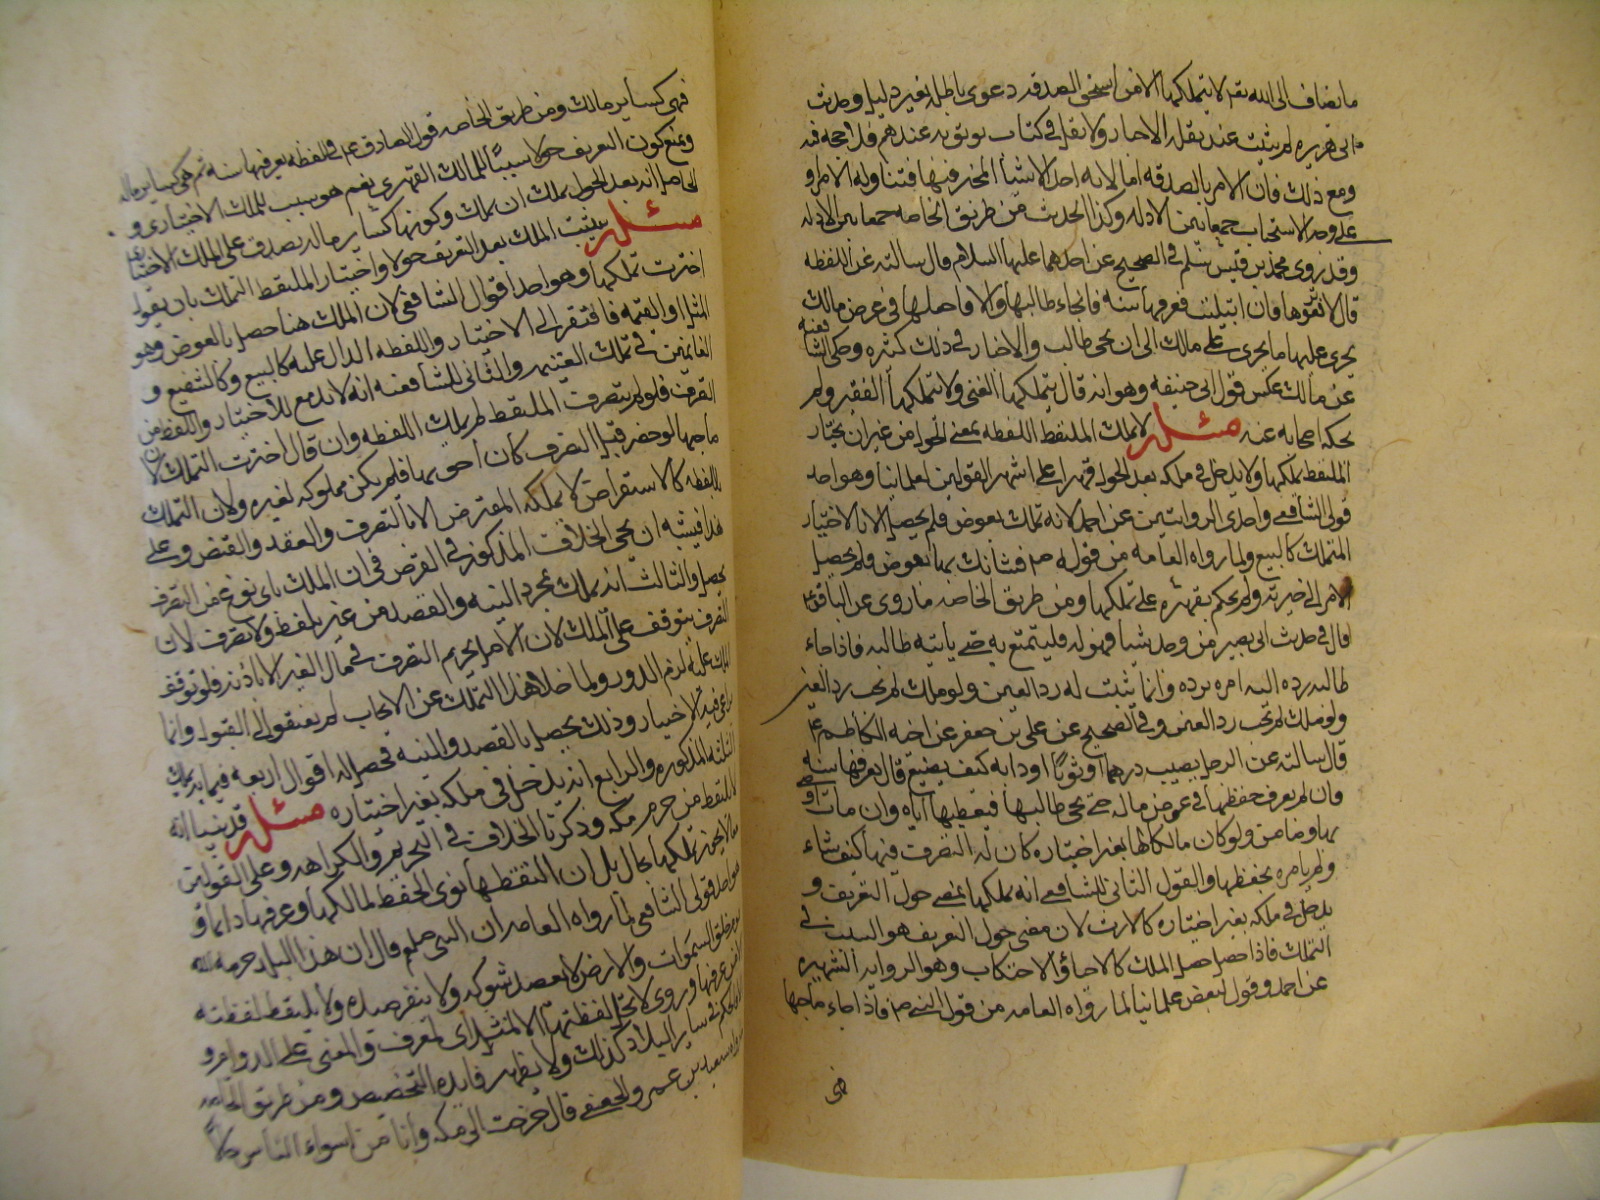 ما يضاف الى الله تعالى لا يتملكها الا من استحق الصدقه دعوى باطله بغير دليل وحديث
ابى هريره لم يثبت عند نقله الاخبار ولا نقل فى كتاب يوثق به عندهم فلا حجه فيه
ومع ذلك فان الامر بالصدقه اما لانه احد الاشيا المخير فيها فتناوله الامر او
على وجه الاستحباب جمعا بين الادله وكذا الحديث من طريق الخاصه جمعا بين الادله
وقد روى محمد بن مسلم فى الصحيح عن احدهما عليهما السلام قال سالته عن اللقطه
قال لا ترفعوها فان ابتليت فعرفها سنه فان جاء طالبها والا فاجعلها فى عرض مالك
يجرى عليها ما يجرى على مالك الى ان يجى طالب والاخبار فى ذلك كثيره وحكى الشافعيه
عن مالك عكس قول ابى حنيفه وهو انه قال يتملكها الغنى ولا يتملكها الفقير ولم
يحكه اصحابه عنه مسئله لا يملك الملتقط اللقطه بمضى الحول من غير ان يختار
الملتقط تملكها ولا يدخل فى ملكه بعد الحول قهرا على اشهر القولين لعلمائنا وهو احد
قولى الشافعى واحدى الروايتين عن احمد لانه تملك بعوض فلم يحصل الا باختيار
المتملك كالبيع ولما رواه العامه من قوله ص فشانك بها فوض
الامر الى خيرته ولم يحكم بقهره على تملكها ومن طريق الخاصه ما روى عن الباقر ع
قال فى حديث ابى بصير من وجد شيا فهو له فليتمتع به حتى ياتيه طالبه فاذا جاء
طالبه رده اليه امره برده وانما يثبت له رد العين ولو ملك لم يجب رد العين
ولو ملك لم يجب رد العين وفى الصحيح عن على بن جعفر عن اخيه الكاظم ع
قال سالته عن الرجل يصيب درهما او ثوبا او دابه كيف يصنع قال يعرفها سنه
فان لم يعرف حفظها فى عرض ماله حتى يجى طالبها فيعطيها اياه وان مات اوصى
بها وهو ضامن ولو كان مالكا لها بغير اختياره كان له التصرف فيها كيف شاء
ولم يامره بحفظها والقول الثانى للشافعى انه يملكها بمضى حول التعريف و
يدخل فى ملكه بغير اختياره كالارث لان مضى حول التعريف هو السبب فى
التملك فاذا حصل حصل الملك كالاحياء والاحتطاب وهو الروايه الشهيره
عن احمد وقول لبعض علمائنا لما رواه العامه من قول النبى ص فاذا جاء صاحبها
فهى كساير مالك ومن طريق الخاصه قول الصادق ع فى اللقطه يعرفها سنه ثم هى كساير ماله
ونمنع كون التعريف حولا سببا للملك القهرى نعم هو سبب للملك الاختيارى و
الحاصل انه بعد الحول يملك ان يملك وكونها كساير ماله يصدق على الملك الاختيارى
مسئله يثبت الملك بعد التعريف حولا واختيار الملتقط التملك بان يقول
اخترت تملكها وهو احد اقوال الشافعى لان الملك هنا حصل بالعوض وهو
المثل او القيمه فافتقر الى الاختيار واللفظ الدال عليه كالبيع وكالشفيع و
الغانمين فى تملك الغنيمه والثانى للشافعيه انه لا بد مع الاختيار واللفظ من
التصرف فلو لم يتصرف الملتقط لم يملك اللقطه وان قال اخترت التملك لان
صاحبها لو حضر قبل التصرف كان احق بها فلم يكن مملوكه لغيره ولان التملك
باللقطه كالاستقراض لا يملكه المقترض الا بالتصرف والعقد والقبض وعلى
هذا فيشبه ان يجى الخلاف المذكور فى القرض فى ان الملك باى نوع من التصرف
يحصل والثالث انه يملك بمجرد النيه والقصد من غير لفظ ولا تصرف لان
التصرف يتوقف على الملك لان الامر بتحريم التصرف فى مال الغير الا باذنه فلو توقف
الملك عليه لزم الدور ولما خلا هذا التملك عن الايجاب لم يفتقر الى القبول وانما
يراعى فيه الاختيار وذلك يحصل بالقصد والنيه فحصل له اقوال اربعه فيما به يملك
الثلثه المذكوره والرابع انه يدخل فى ملكه بغير اختياره مسئله قد بينا انه
لا يلتقط من حرم مكه وذكرنا الخلاف فى التحريم والكراهه وعلى القولين
لا يجوز تملكها بحال بل ان التقطها نوى الحفظ لمالكها وعرفها دايما و
هو احد قولى الشافعى لما رواه العامه ان النبى صلعم قال ان هذا البلد حرمه الله
يوم خلق السموات والارض لا يعضد شوكه ولا ينفر صيده ولا يلتقط لقطته
الا من عرفها وروى لا تحل لقطتها الا لمنشد اى لمعرف والمعنى على الدوام و
الا فالحكم فى ساير البلاد كذلك ولا يظهر فايده التخصيص ومن طريق الخاصه
ما رواه سعيد بن عمرو الجعفى قال خرجت الى مكه وانا من اسواء الناس حالا